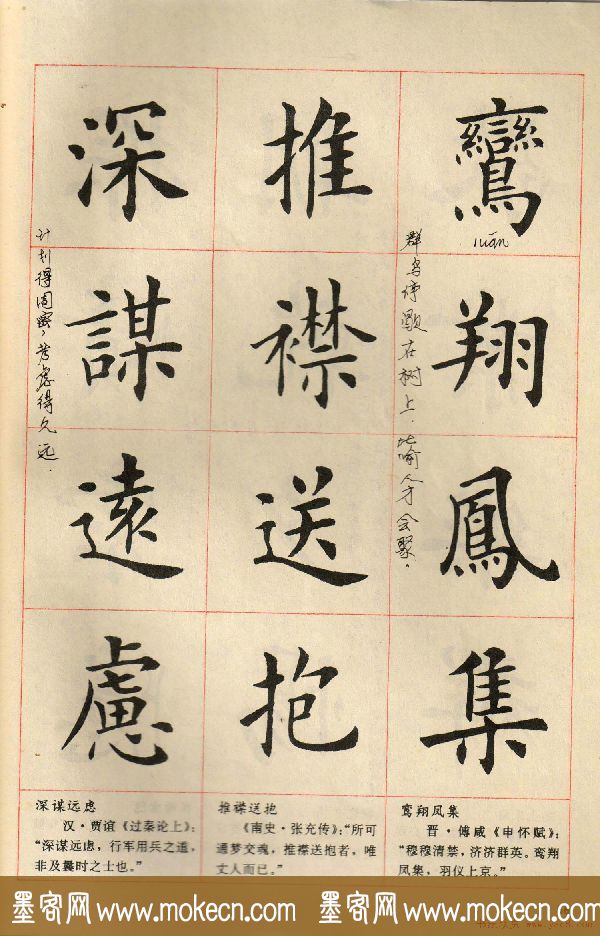 鸞翔鳳集
推襟送抱
深謀遠慮
luán
群鸟停歇在树上.比喻人才会聚。
计划得周密,考虑得久远.
鸾翔凤集
晋·傅咸《申怀赋》:
“穆穆清禁,济济群英。鸾翔
凤集,羽仪上京。”
推襟送抱
《南史·张充传》:“所可
通梦交魂,推襟送抱者,唯
丈人而已。”
深谋远虑
汉·贾谊《过秦论上》:
“深谋远虑,行军用兵之道,
非及曩时之士也。”
墨客网 www.mokecn.com 墨客网 www.mokecn.com